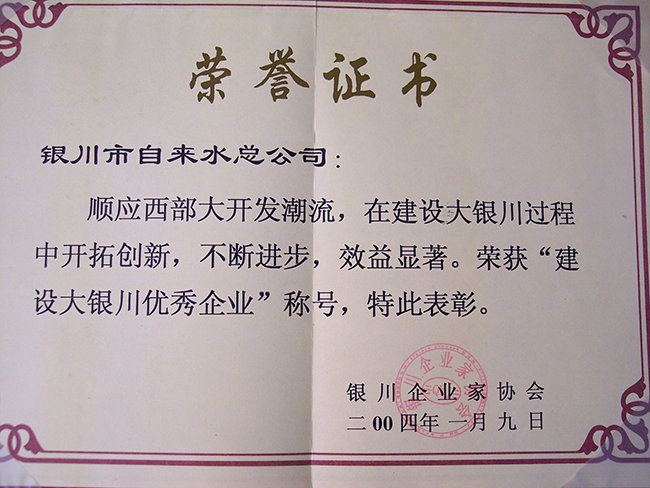 荣誉证书
银川市自来水总公司：
顺应西部大开发潮流，在建设大银川过程
中开拓创新，不断进步，效益显著。荣获“建
设大银川优秀企业”称号，特此表彰。
银川企业家协会
二00四年一月九日
银川企业家协会